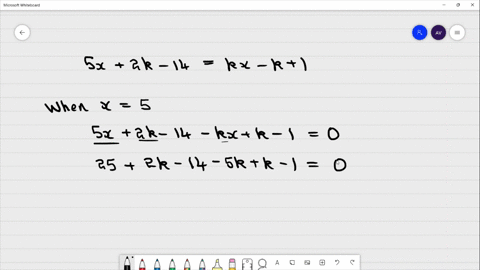 Microsoft Whiteboard
AV
5x + 2k - 14 = kx - k + 1
When x = 5
5x + 2k - 14 - kx + k - 1 = 0
25 + 2k - 14 - 5k + k - 1 = 0